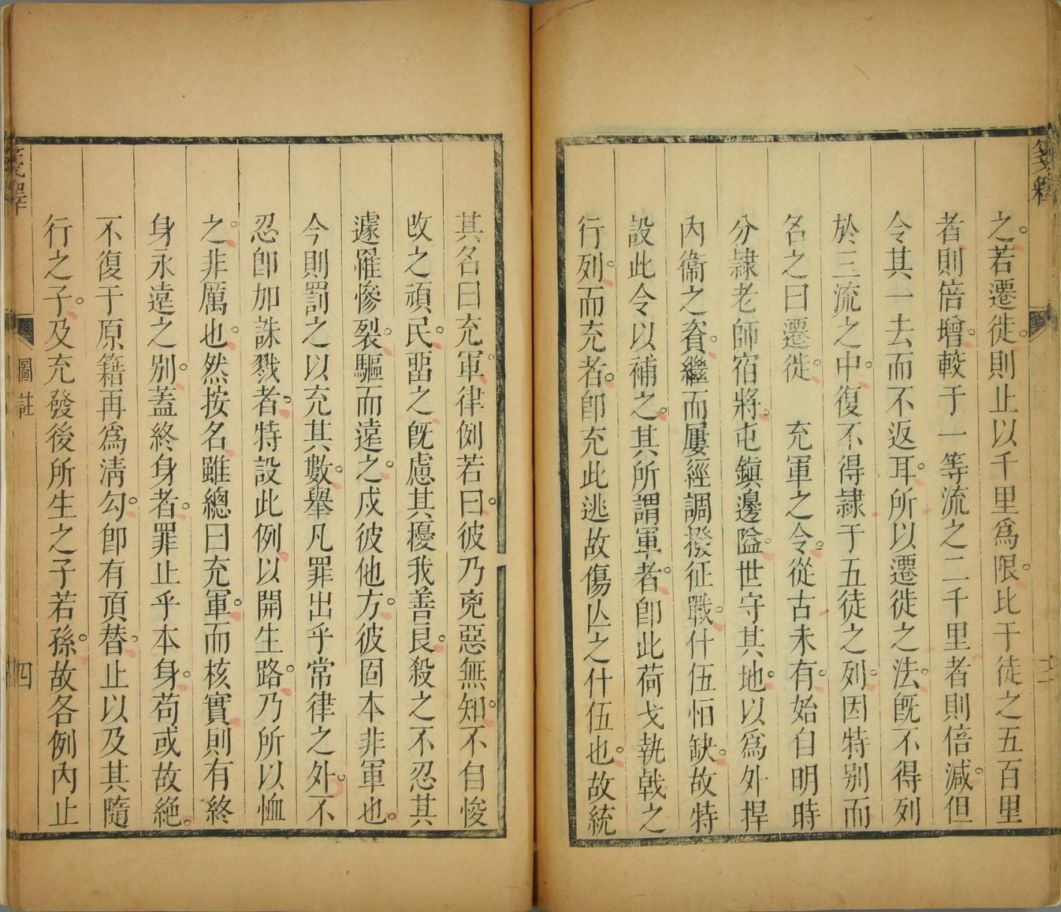 箋釋
之。若遷徙。則止以千里爲限。比于徒之五百里
者則倍增。較于一等流之二千里者則倍減。但
令其一去而不返耳。所以遷徙之法。旣不得列
於三流之中。復不得隷于五徒之列。因特别而
名之曰遷徙。　充軍之令。從古未有。始自明時
分隷老師宿將。屯鎮邊隘。世守其地。以爲外捍
內衞之資。繼而屢經調撥征戰。什伍怕缺。故特
設此令以補之。其所謂軍者。卽此荷戈執戟之
行列。而充者。卽充此逃故傷亾之什伍也。故統
其名曰充軍。律例若曰。彼乃兇惡無知。不自悛
改之頑民。畱之旣慮其擾我善良。殺之不忍其
遽罹慘裂。驅而遠之。戍彼他方。彼固本非軍也。
今則罰之以充其數。舉凡罪出乎常律之外。不
忍卽加誅戮者。特設此例。以開生路。乃所以恤
之。非厲也。然按名雖總曰充軍。而核實則有終
身永遠之别。蓋終身者。罪止乎本身。苟或故絶。
不復于原籍再爲淸勾。卽有頂替。止以及其隨
行之子。及充發後所生之子若孫。故各例內止
箋釋
圖註
四